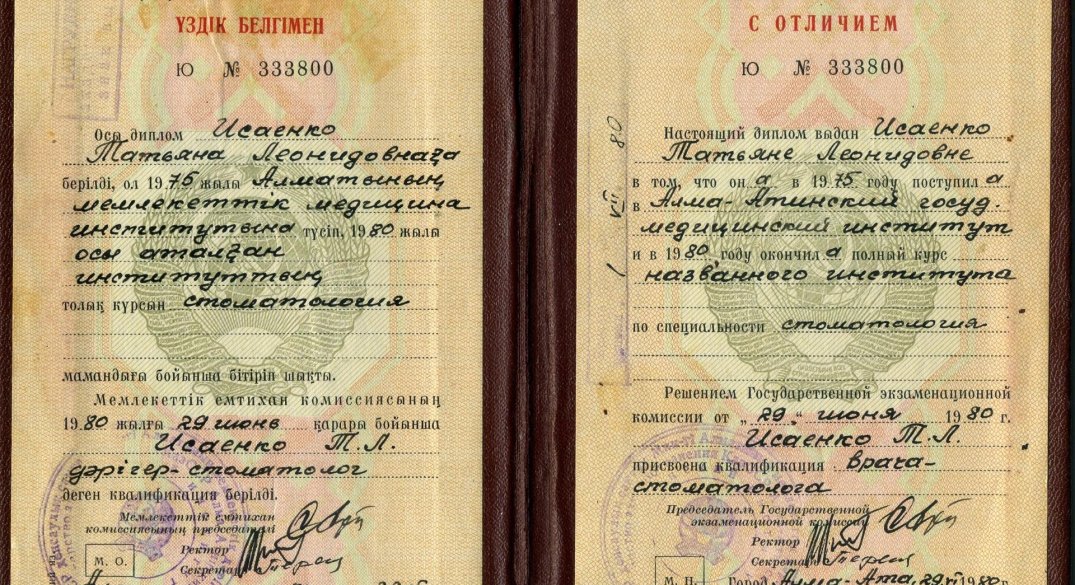 ҮЗДІК БЕЛГІМЕН
Ю № 333800
Осы диплом Исаенко
Татьяна Леонидовнаға
берілді, ол 1975 жылы Алматының
мемлекеттік медицина
институтына түсіп, 1980 жылы
осы аталған
институттың
толық курсын стоматология
мамандығы бойынша бітіріп шықты.
Мемлекеттік емтихан комиссиясының
1980 жылғы 29 июнь қарары бойынша
Исаенко Т.Л.
дәрігер-стоматолог
деген квалификация берілді.
Мемлекеттік емтихан
комиссиясының председателі
Ректор
Секретарь
М. О.
С ОТЛИЧИЕМ
Ю № 333800
Настоящий диплом выдан Исаенко
Татьяне Леонидовне
в том, что он а в 1975 году поступил а
в Алма-Атинский госуд.
медицинский институт
и в 1980 году окончил а полный курс
названного института
по специальности стоматология
Решением Государственной экзаменационной
комиссии от „29“ июня 1980 г.
Исаенко Т.Л.
присвоена квалификация врача-
стоматолога
Председатель Государственной
экзаменационной комиссии
Ректор
Секретарь
М. П.
Город Алма-Ата 29 VI 1980 г.